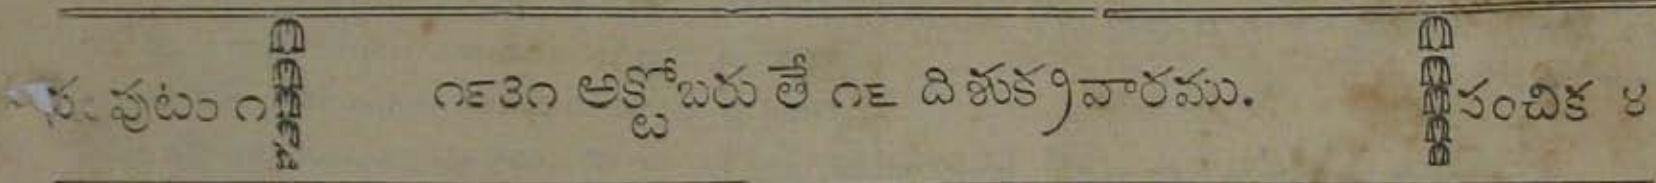 సంపుటం ౧ ౧౯౩౧ అక్టోబరు తే ౧౬ ది శుక్రవారము. సంచిక ౪